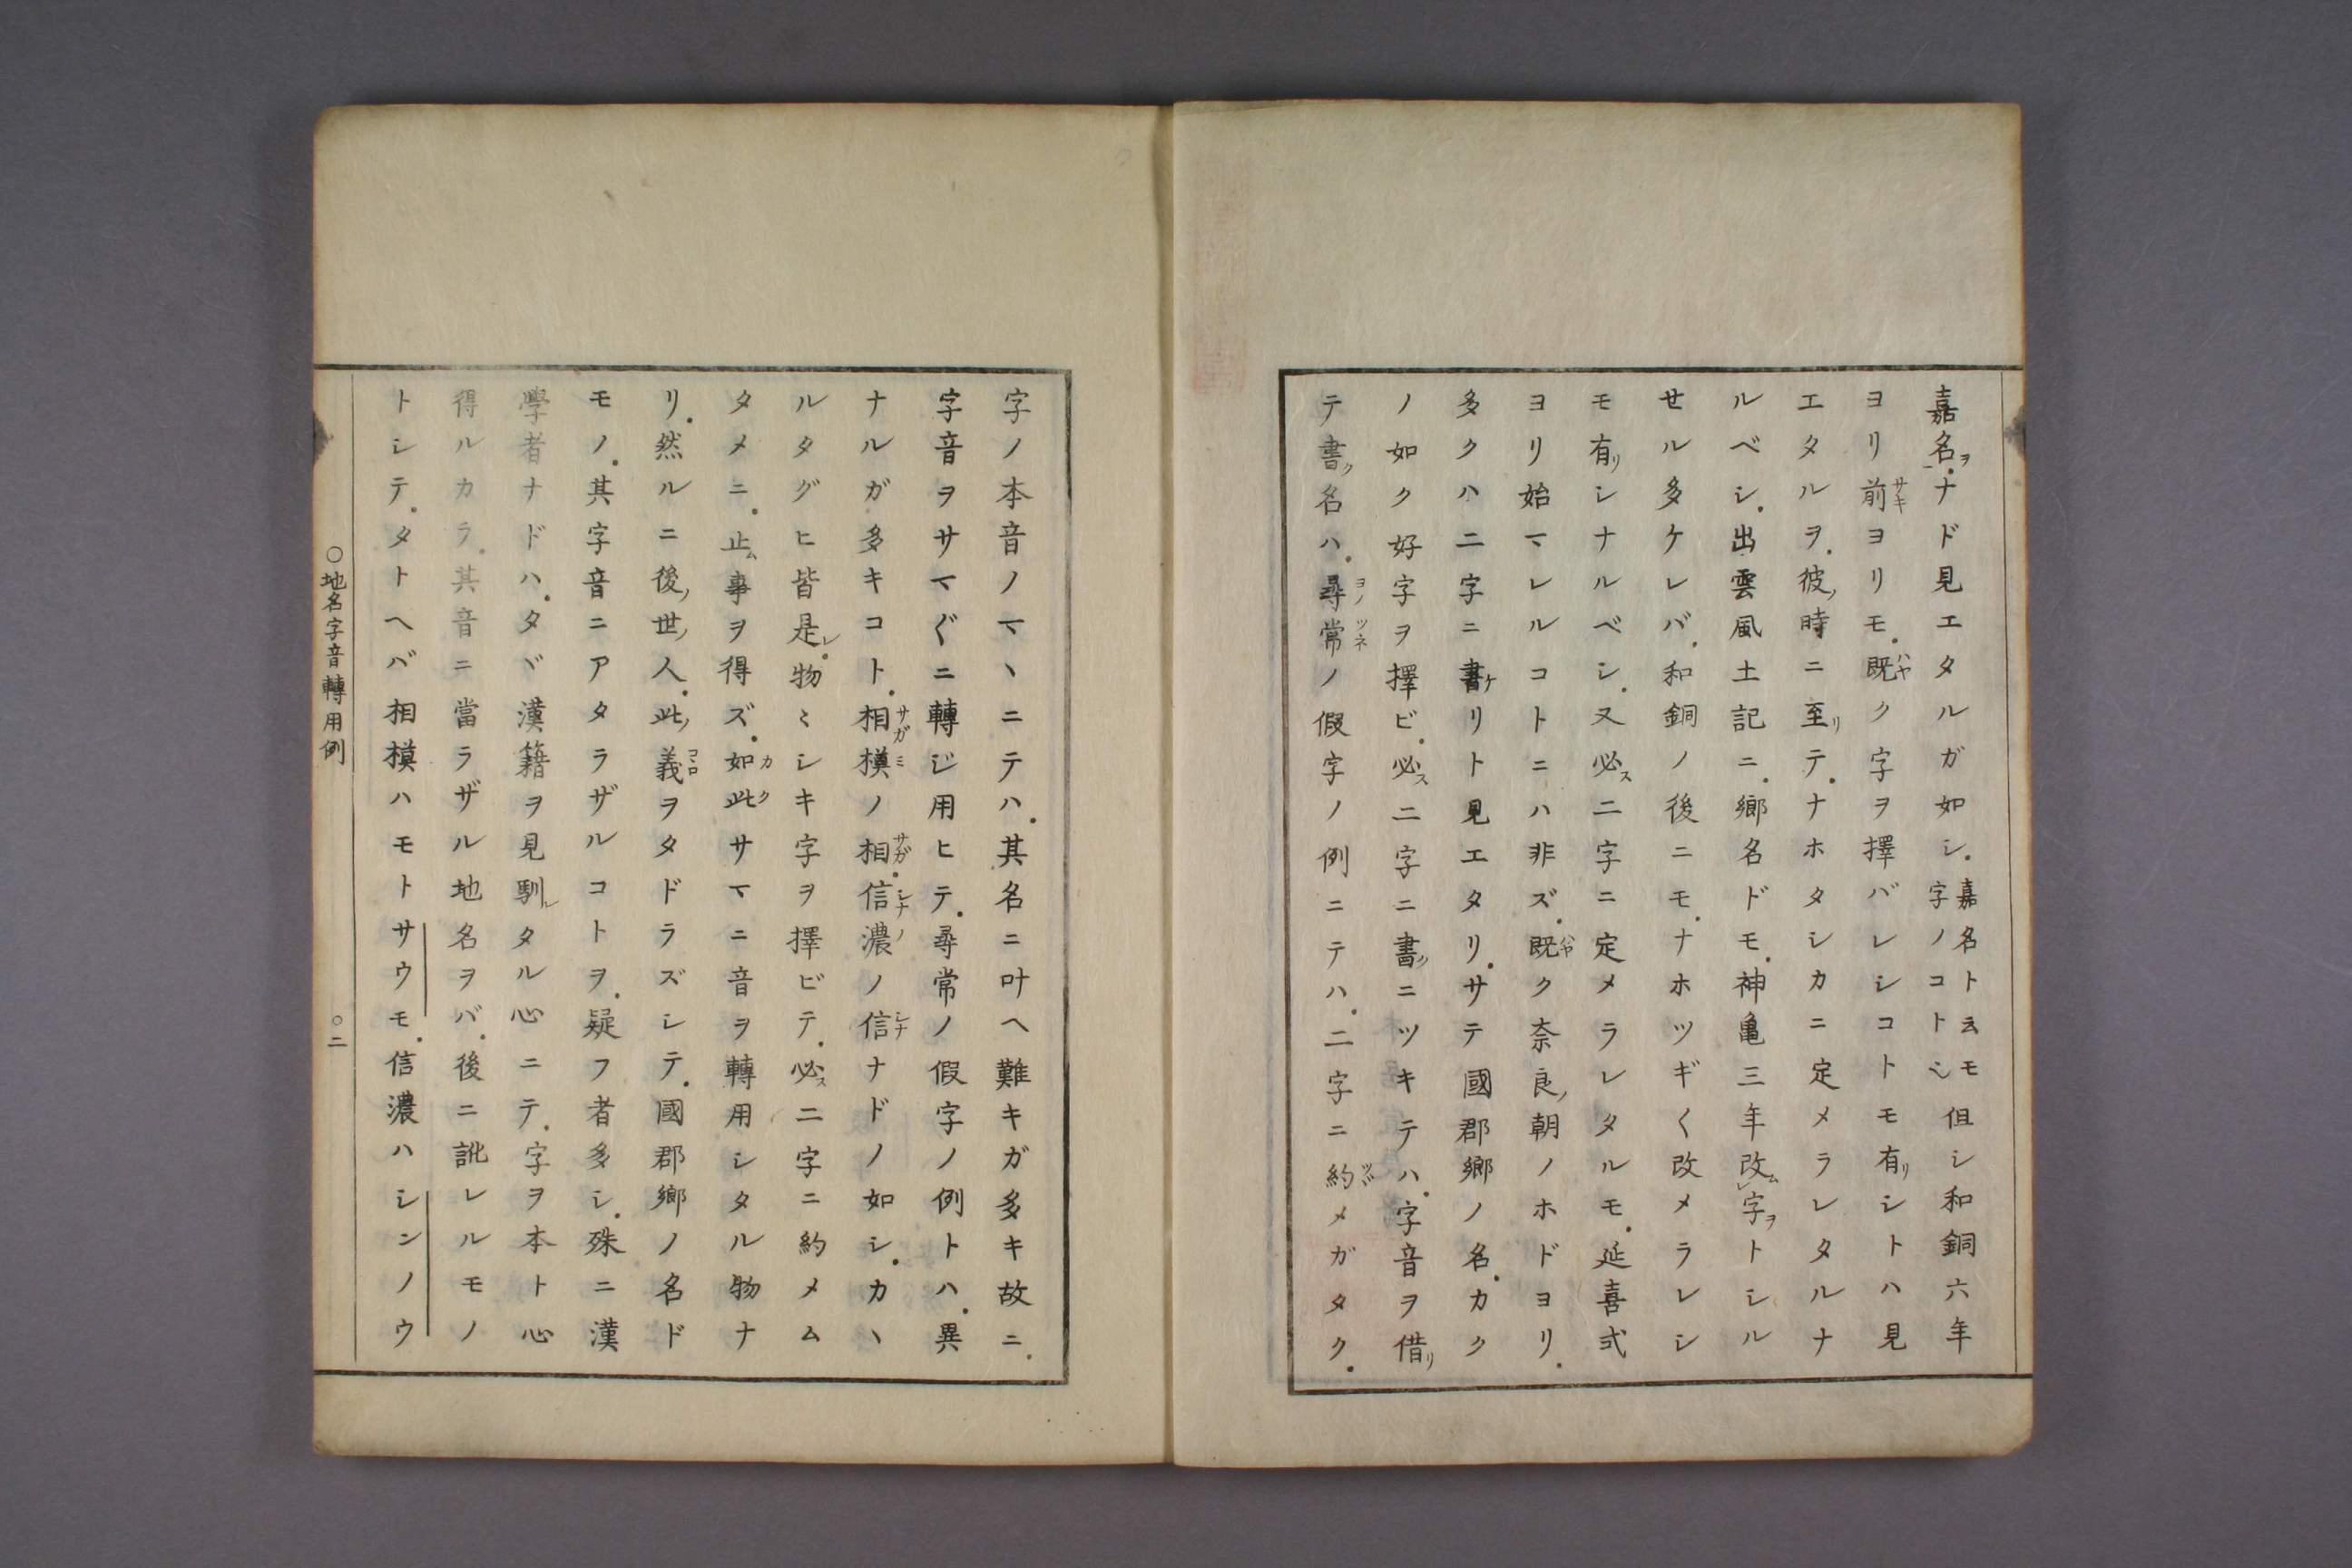 嘉名ヲ.ナド見エタルガ如シ.嘉名ト云モ字ノコト也但シ和銅六年
ヨリ前ヨリモ.既ク字ヲ擇バレシコトモ有リシトハ見
エタルヲ.彼ノ時ニ至リテ.ナホタシカニ定メラレタルナ
ルベシ.出雲風土記ニ.郷名ドモ.神亀三年改ムレ字ヲトシル
セル多ケレバ.和銅ノ後ニモ.ナホツギ〱改メラレシ
モ有リシナルベシ.又必ス二字ニ定メラレタルモ.延喜式
ヨリ始マレルコトニハ非ズ.既ク奈良ノ朝ノホドヨリ.
多クハ二字ニ書ケリト見エタリ.サテ國郡郷ノ名.カク
ノ如ク好字ヲ擇ビ.必ス二字ニ書クニツキテハ.字音ヲ借リ
テ書ク名ハ.尋常ノ假字ノ例ニテハ.二字ニ約メガタク.
字ノ本音ノマヽニテハ.其名ニ叶ヘ難キガ多キ故ニ.
字音ヲサマ〲ニ轉ジ用ヒテ.尋常ノ假字ノ例トハ.異
ナルガ多キコト.相模ノ相.信濃ノ信ナドノ如シ.カヽ
ルタグヒ皆是レ.物〻シキ字ヲ擇ビテ.必ス二字ニ約メム
タメニ.止ム事ヲ得ズ.如此サマニ音ヲ轉用シタル物ナ
リ.然ルニ後ノ世ノ人.此ノ義ヲタドラズシテ.國郡郷ノ名ド
モノ.其字音ニアタラザルコトヲ.疑フ者多シ.殊ニ漢
學者ナドハ.タヾ漢籍ヲ見馴レタル心ニテ.字ヲ本ト心
得ルカラ.其音ニ當ラザル地名ヲバ.後ニ訛レルモノ
トシテ.タトヘバ相模ハモトサウモ.信濃ハシンノウ
○地名字音轉用例
○二